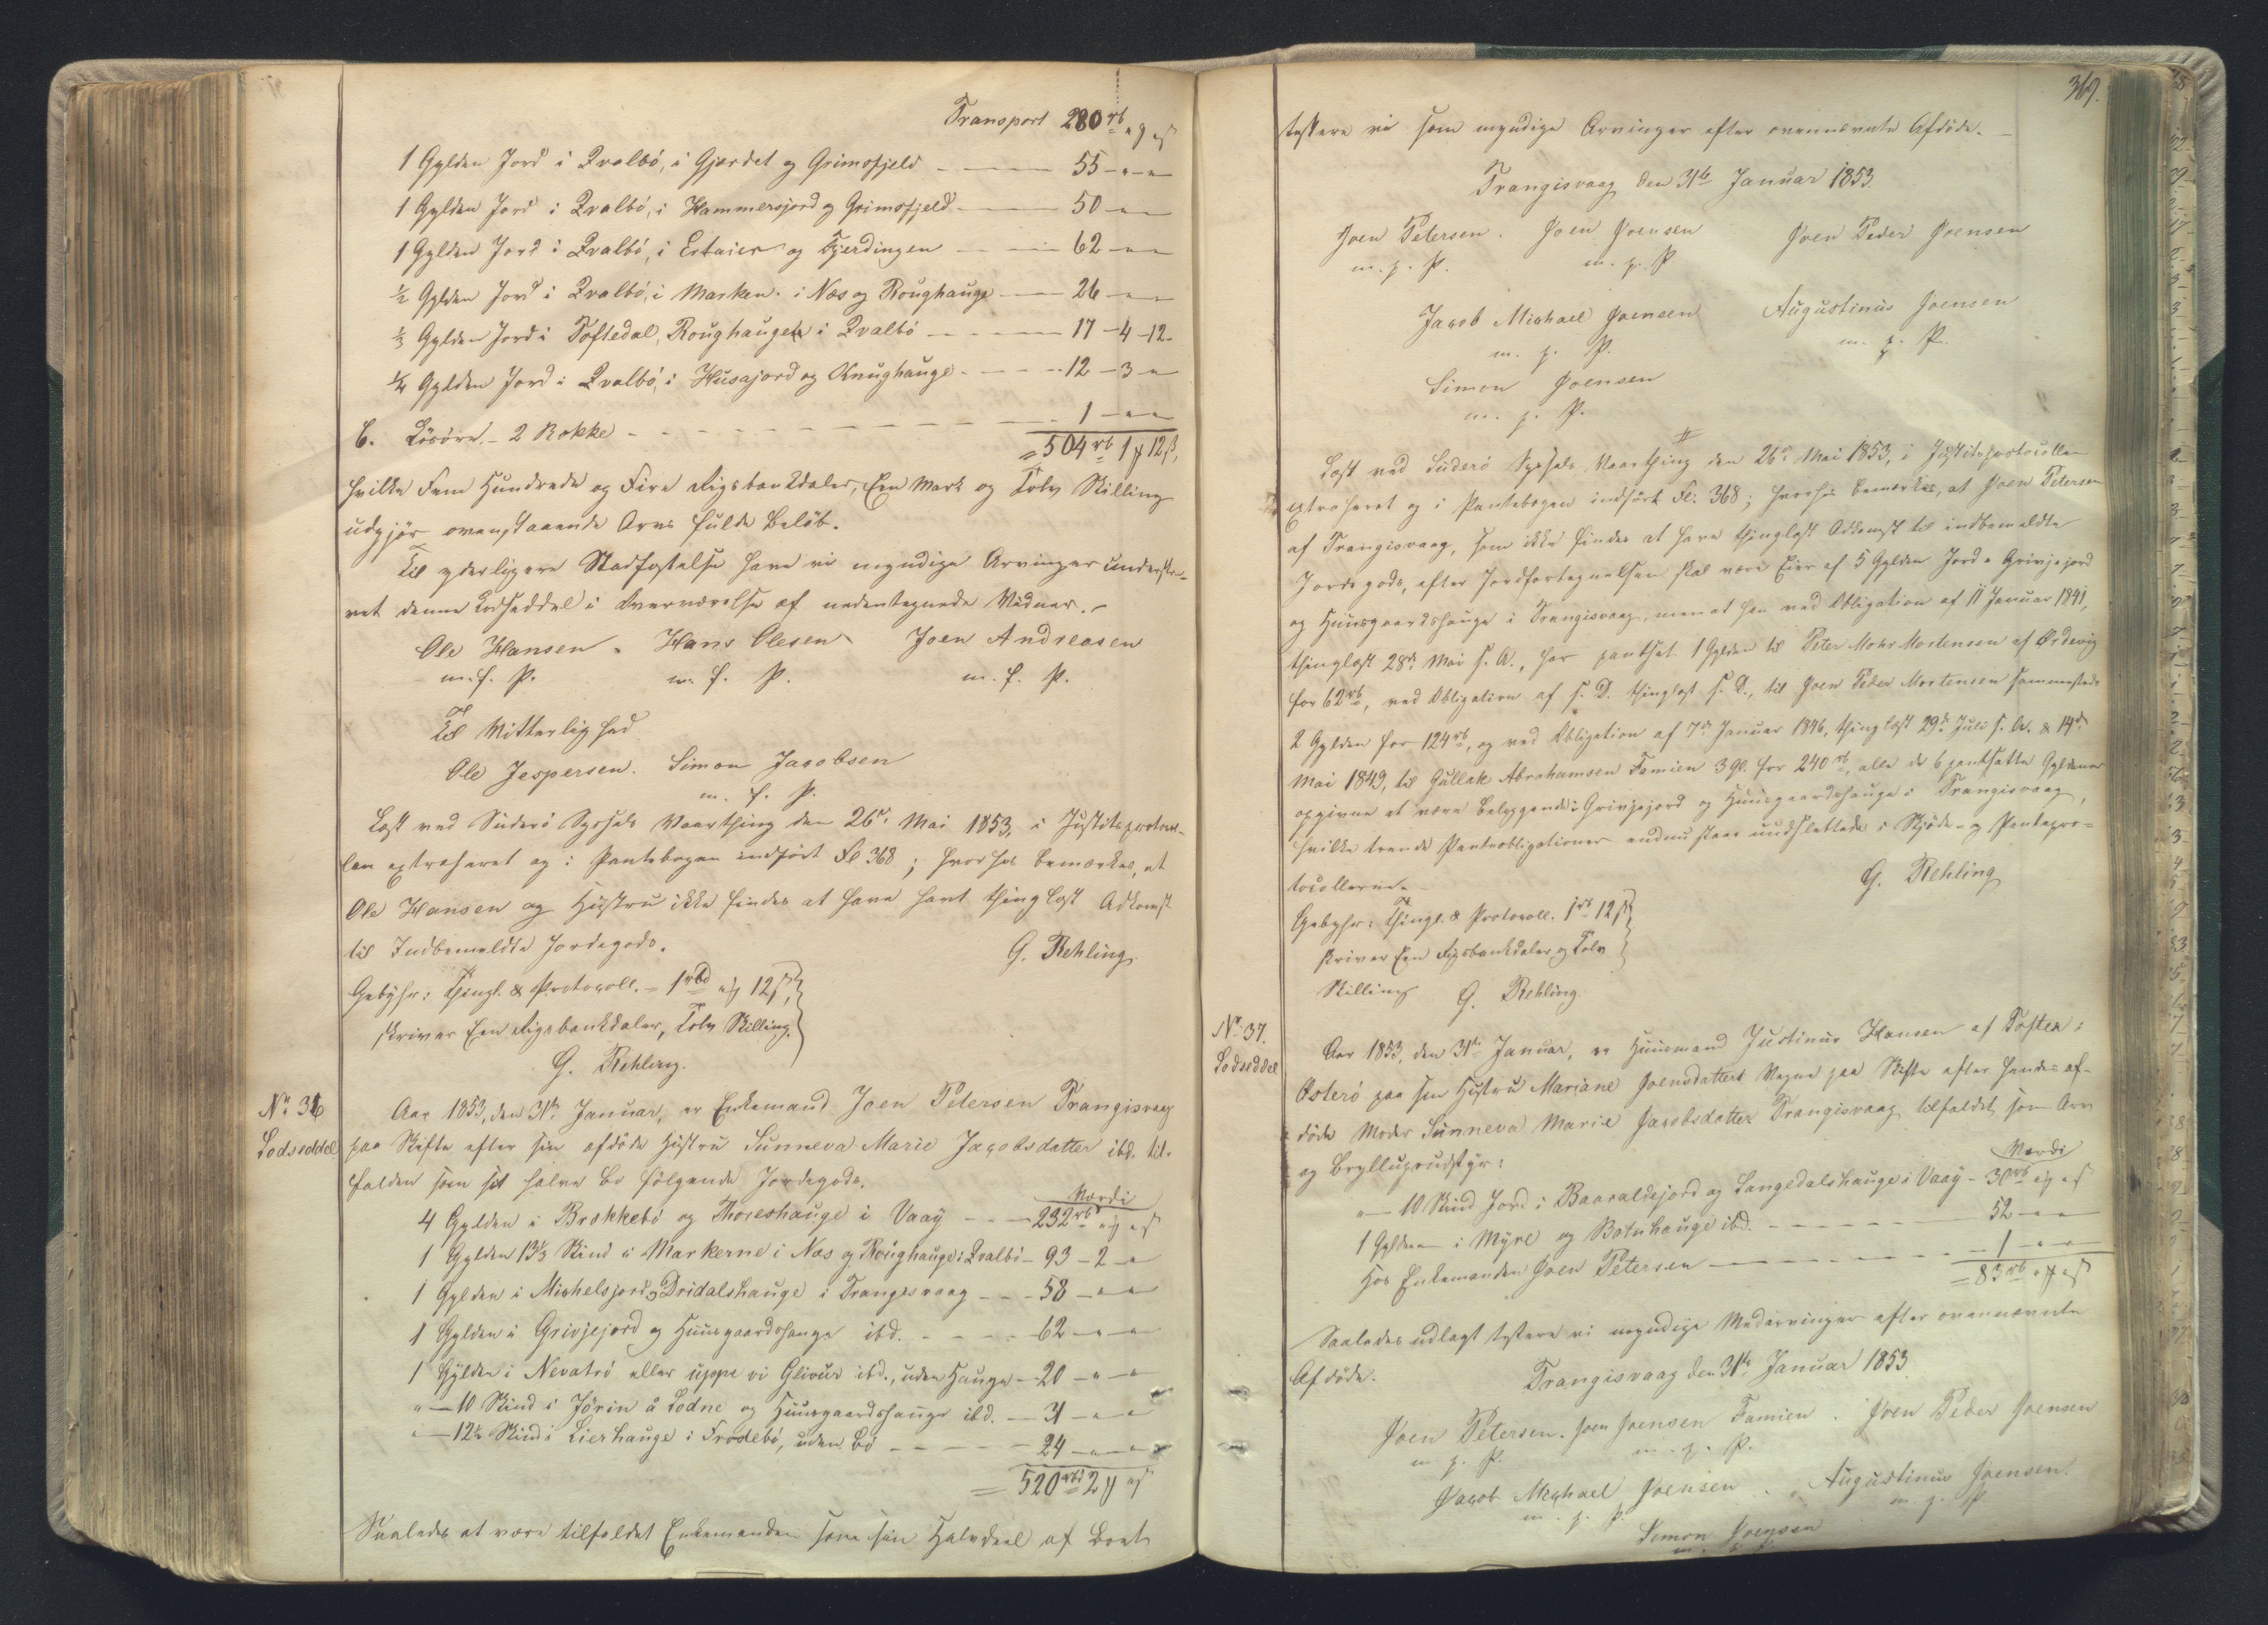 Transport 280 rb " " ß
1 Gylden Jord i Qvalbö, i Gjærdet og Grimsfjeld 55 - " - "
1 Gylden Jord i Qvalbö, i Hammersjord og Grimsfjeld 50 - " - "
1 Gylden Jord i Qvalbö, i Ertaier og Fjerdingen 62 - " - "
½ Gylden Jord i Qvalbö, i Marken i Næs og Roughauge 26 - " - "
⅓ Gylden Jord i Toftedal, Roughauge i Qvalbö 17 - 4 - 12.
¼ Gylden Jord i Qvalbö, i Husajord og Knughauge 12 - 3 - "
C. Lösöre. - 2 Rokke 1 - " - "
= 504 rb 1 ꝟ 12 ß,
hvilke Fem Hundrede og Fire Rigsbankdaler, Een Mark og Tolv Skilling
udgjör ovenstaaende Arvs fulde Belöb.
Til yderligere Stadfæstelse have vi myndige Arvinger underskre-
vet denne Lodseddel i Overværelse af nedentegnede Vidner. -
Ole Hansen. Hans Olesen Joen Andreasen
m. f. P. m. f. P. m. f. P.
Til Vitterlighed
Ole Jespersen. Simon Jacobsen
m. f. P.
Læst ved Suderö Syssels Vaarthing den 26de Mai 1853, i Justitsprotocol-
len extraheret og i Pantebogen indfört Fl 368; hvorhos bemærkes, at
Ole Hansen og Hustru ikke findes at have havt thinglæst Adkomst
til Indbemeldte Jordegods.
G. Rehling
Gebyhr: Thingl. & Protocoll. = 1 rbd " ꝟ 12 ß,
skriver Een Rigsbankdaler, Tolv Skilling.
G. Rehling.
No. 36
Lodseddel
Aar 1853, den 31te Januar, er Enkemand Joen Petersen Trangisvaag
paa Skifte efter sin afdöde Hustru Sunneva Marie Jacobsdatter ibd. til-
falden som sit halve Bo fölgende Jordegods.
Værdi
4 Gylden i Brekkebö og Thoreshauge i Vaag 232 rbd " ꝟ " ß
1 Gylden 13⅓ Skind i Markerne i Næs og Roughauge i Qvalbö 93 - 2 - "
1 Gylden i Michelsjord og Dridalshauge i Trangisvaag 58 - " - "
1 Gylden i Grivjejord og Huusgaardshauge ibd. 62 - " - "
1 Gylden i Nevatrö eller uppe vi Glivur ibd., uden Hauge 20 - " - "
" - 10 Skind i Jörin å Lodne og Huusgaardshauge ibd. 31 - " - "
" - 12½ Skind i Lierhauge i Frodebö, uden Bö 24 - " - "
= 520 rbd 2 ꝟ " ß
Saaledes at være tilfaldet Enkemanden som sin Halvdeel af Boet
369.
testere vi som myndige Arvinger efter ovennævnte Afdöde. -
Trangisvaag den 31te Januar 1853.
Joen Petersen. Joen Joensen Joen Peder Joensen
m. f. P. m. f. P
Jacob Michael Joensen Augustinus Joensen
m. f. P. m. f. P.
Simon Joensen
m. f. P.
Læst ved Suderö Syssels Vaarthing den 26de Mai 1853, i Justitsprotocollen
extraheret og i Pantebogen indfört Fl: 368; hvorhos bemærkes, at Joen Petersen
af Trangisvaag, som ikke findes at have thinglæst Adkomst til indbemeldte
Jordegods, efter Jordfortegnelsen skal være Eier af 5 Gylden Jord i Grivjejord
og Huusgaardshauge i Trangisvaag, men at han ved Obligation af 11 Januar 1841,
thinglæst 28de Mai s. A., har pantsat 1 Gylden til Peter Mohr Mortensen af Ördevig
for 62 rb, ved Obligation af s. D. thinglæst s. D., til Joen Peder Mortensen sammesteds
2 Gylden for 124 rb, og ved Obligation af 7de Januar 1846, thinglæst 29de Juli s. A. & 14de
Mai 1849, til Gullak Abrahamsen Famien 3 Gl. for 240 rb, alle de 6 pantsatte Gylden
opgivne at være beliggende i Grivjejord og Huusgaardshauge i Trangisvaag,
hvilke trende Panteobligationer endnu staae uudslettede i Skjöde- og Pantepro-
tocollerne.
G. Rehling
Gebyhr: Thingl. & Protocoll. 1 rb 12 ß
skriver Een Rigsbankdaler og Tolv
Skilling G. Rehling.
No. 37.
Lodseddel
Aar 1853, den 31te Januar, er Huusmand Justinus Hansen af Toften i
Österö paa sin Hustru Mariane Joensdatters Vegne paa Skifte efter hendes af-
döde Moder Sunneva Marie Jacobsdatter Trangisvaag tilfaldet som Arv
og Bryllupsudstyr:
Værdi
" - 10 Skind Jord i Baaraldejord og Langedalshauge i Vaag 30 rb " ꝟ " ß
1 Gylden i Myre og Botnhauge ibd. 52 - " - "
Hos Enkemanden Joen Petersen 1 - " - "
= 83 rb " ꝟ " ß
Saaledes udlagt testere vi myndige Medarvinger efter ovennævnte
Afdöde.
Trangisvaag den 31te Januar 1853.
Joen Petersen. Joen Joensen Famien. Joen Peder Joensen
m. f. P. m. f. P.
Jacob Michael Joensen. Augustinus Joensen.
m. f. P. m. f. P
Simon Joensen